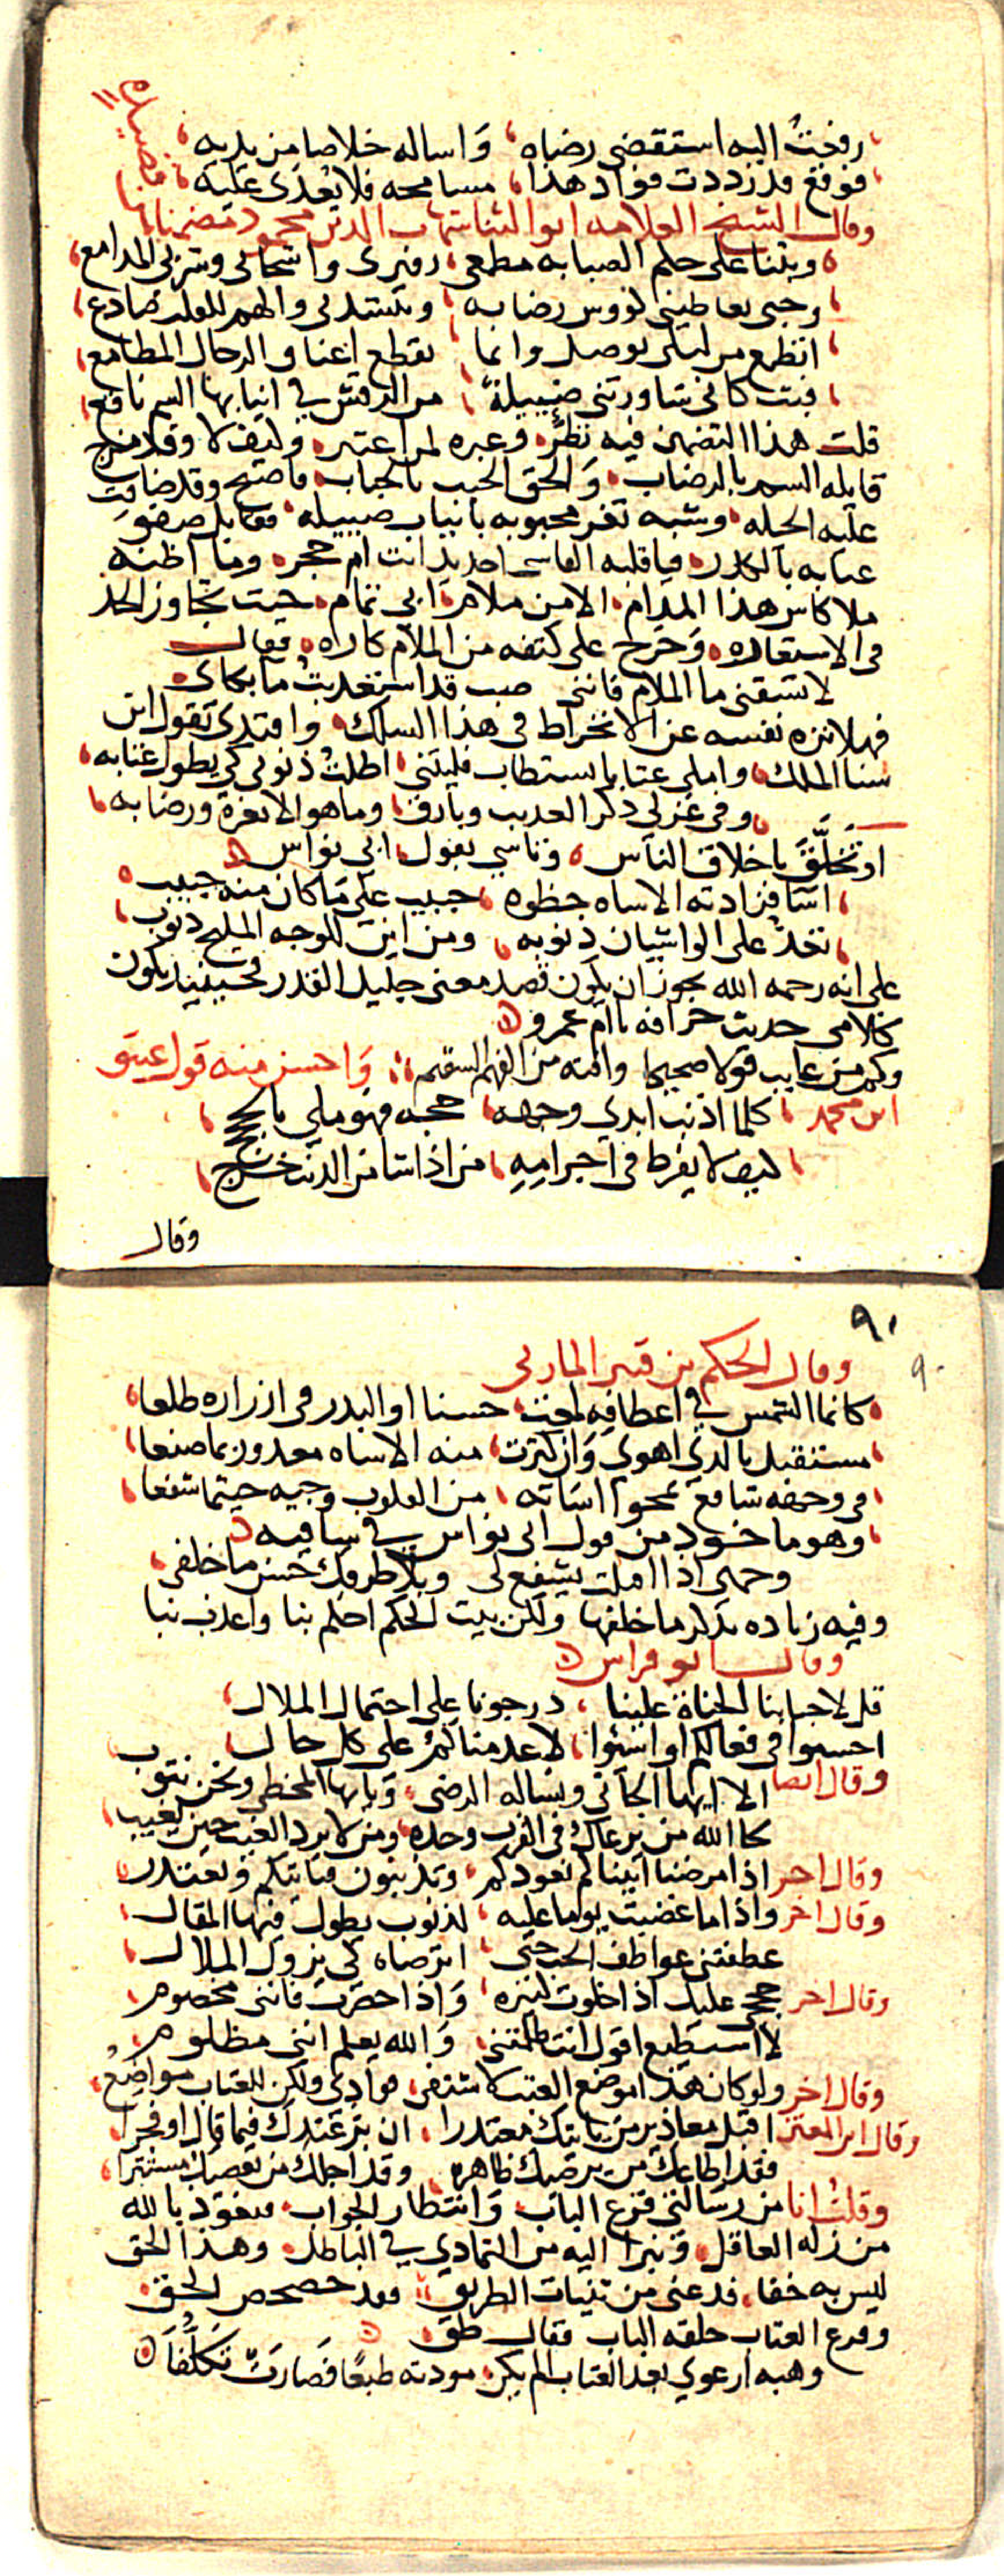 رفعت اليه استقضى رضاه، واساله خلاصا من يديه،
فوقع قد زددت فواد هذا، مسامحه فلا يعدى عليه،
وقال الشيخ العلامه ابو الثنا شهاب الدين محمود مضمنا
قصيده
وبتنا على حلم الصبابه مطعمى، زفيرى واشجانى وشربى المدامع،
وحبى يعاطينى كووس رضابه، وينشد لى والهم للقلب صادع،
اتطمع من ليلى بوصل وانما تقطع اعناق الرجال المطامع،
فبت كانى ساورتنى ضييلة، من الرقش في انيابها السم ناقع،
قلت هذا التضمين فيه نظر، وعبره لمن اعتبر، وكيف لا وقد مزج
قابله السم بالرضاب، والحق الحبب بالحباب، فاصبح وقد ضاقت
عليه الحيله، وشبه ثغر محبوبه بانياب ضييله، فقابل صفو
عتابه بالكدر، فيا قلبه القاسى احديد انت ام حجر، وما اظنه
ملا كاس هذا المدام، الا من ملام ابي تمام، حيث تجاوز الحد
فى الاستعاره، وخرج على كتفه من الملام كاراه، فقال
لا تسقنى ما الملام فاننى صب قد استعذبت ما بكاى،
فهلا نزه نفسه عن الانخراط فى هذا السلك، واقتدى بقول ابن
سنا الملك، واملى عتابا يستطاب فليتنى، اطلت ذنوبى كى يطول عتابه،
وفى غزلى ذكر العذيب وبارق، وما هو الا ثغره ورضابه،
او تخلق باخلاق الناس، وتاسي بقول ابي نواس
اسا فزادته الاساه حظوه، حبيب على ما كان منه حبيب،
تعد على الواشيان ذنوبه، ومن اين للوجه المليح ذنوب،
على انه رحمه الله يجوز ان يكون قصد معنى جليل القدر فحينيذ يكون
كلامى حديث خرافه يا ام عمرو
وكم من عايب قولا صحيحا وافته من الفهم السقيم، واحسن منه قول عيتو
ابن محمد، كلما اذنب ابدي وجهه، حجه فهو ملي بالحجج،
كيف لا يفرط فى اجرامه، من اذا شا من الذنب خرج،
وقال
٩٠
٩٠
وقال الحكم بن قنبر المازنى
كانما الشمس في اعطافه لمعت، حسنا او البدر فى ازراره طلعا،
مستقبل بالذي اهوى وان كثرت، منه الاساه معذور بما صنعا،
فى وجهه شافع يمحوا اساته، من القلوب وجيه حيثما شفعا،
وهو ماخوذ من قول ابي نواس في ساقيه
وجهى اذا اقبلت يشفع لى وبلا طروبك حسن ما خلفى،
وفيه زياده بذكر ما خلفها ولكن بيت الحكم احكم بنا واعذب نبا
وقال ابو فراس
قل لاحبابنا الجناة علينا، درجونا على احتمال الملال،
احسنوا فى فعالكم او اسئوا، لا عدمناكم على كل حال،
وقال ايضا الا ايها الجانى ونساله الرضى، ويا ايها المخطى ونحن نتوب
لحا الله من يرعاك فى القرب وحده، ومن لا يرد الغيب حين تغيب،
وقال اخر اذا مرضنا اتيناكم نعودكم، وتذنبون فناتيكم ونعتذر،
وقال اخر واذا ما غضبت يوما عليه، لذنوب يطول فيها المقال،
عطفتنى عواطف الحب حتى، اترضاه كى يزول الملال،
وقال اخر حججى عليك اذا خلوت كثيره، واذا حضرت فاننى مخصوم،
لا استطيع اقول انت ظلمتنى، والله يعلم اننى مظلوم،
وقال اخر ولو كان هذا موضع العتب لاشتفى فوادى ولكن للعتاب مواضع،
وقال ابن المعتز اقبل معاذير من ياتيك معتذرا، ان بر عندك فيما قال او فجرا
فقد اطاعك من يرضيك ظاهره، وقد اجلك من يعصيك مستترا،
وقلت انا من رسالتى قرع الباب، وانتظار الجواب، فنعوذ بالله
من زله العاقل، ونبرا اليه من التمادي في الباطل، وهذا الحق
ليس به خفا، فدعنى من ثنيات الطريق، فقد حصحص الحق،
وقرع العتاب حلقه الباب فقال طق،
وهبه ارعوي بعد العتاب الم يكن، مودته طبعا فصارت تكلفا